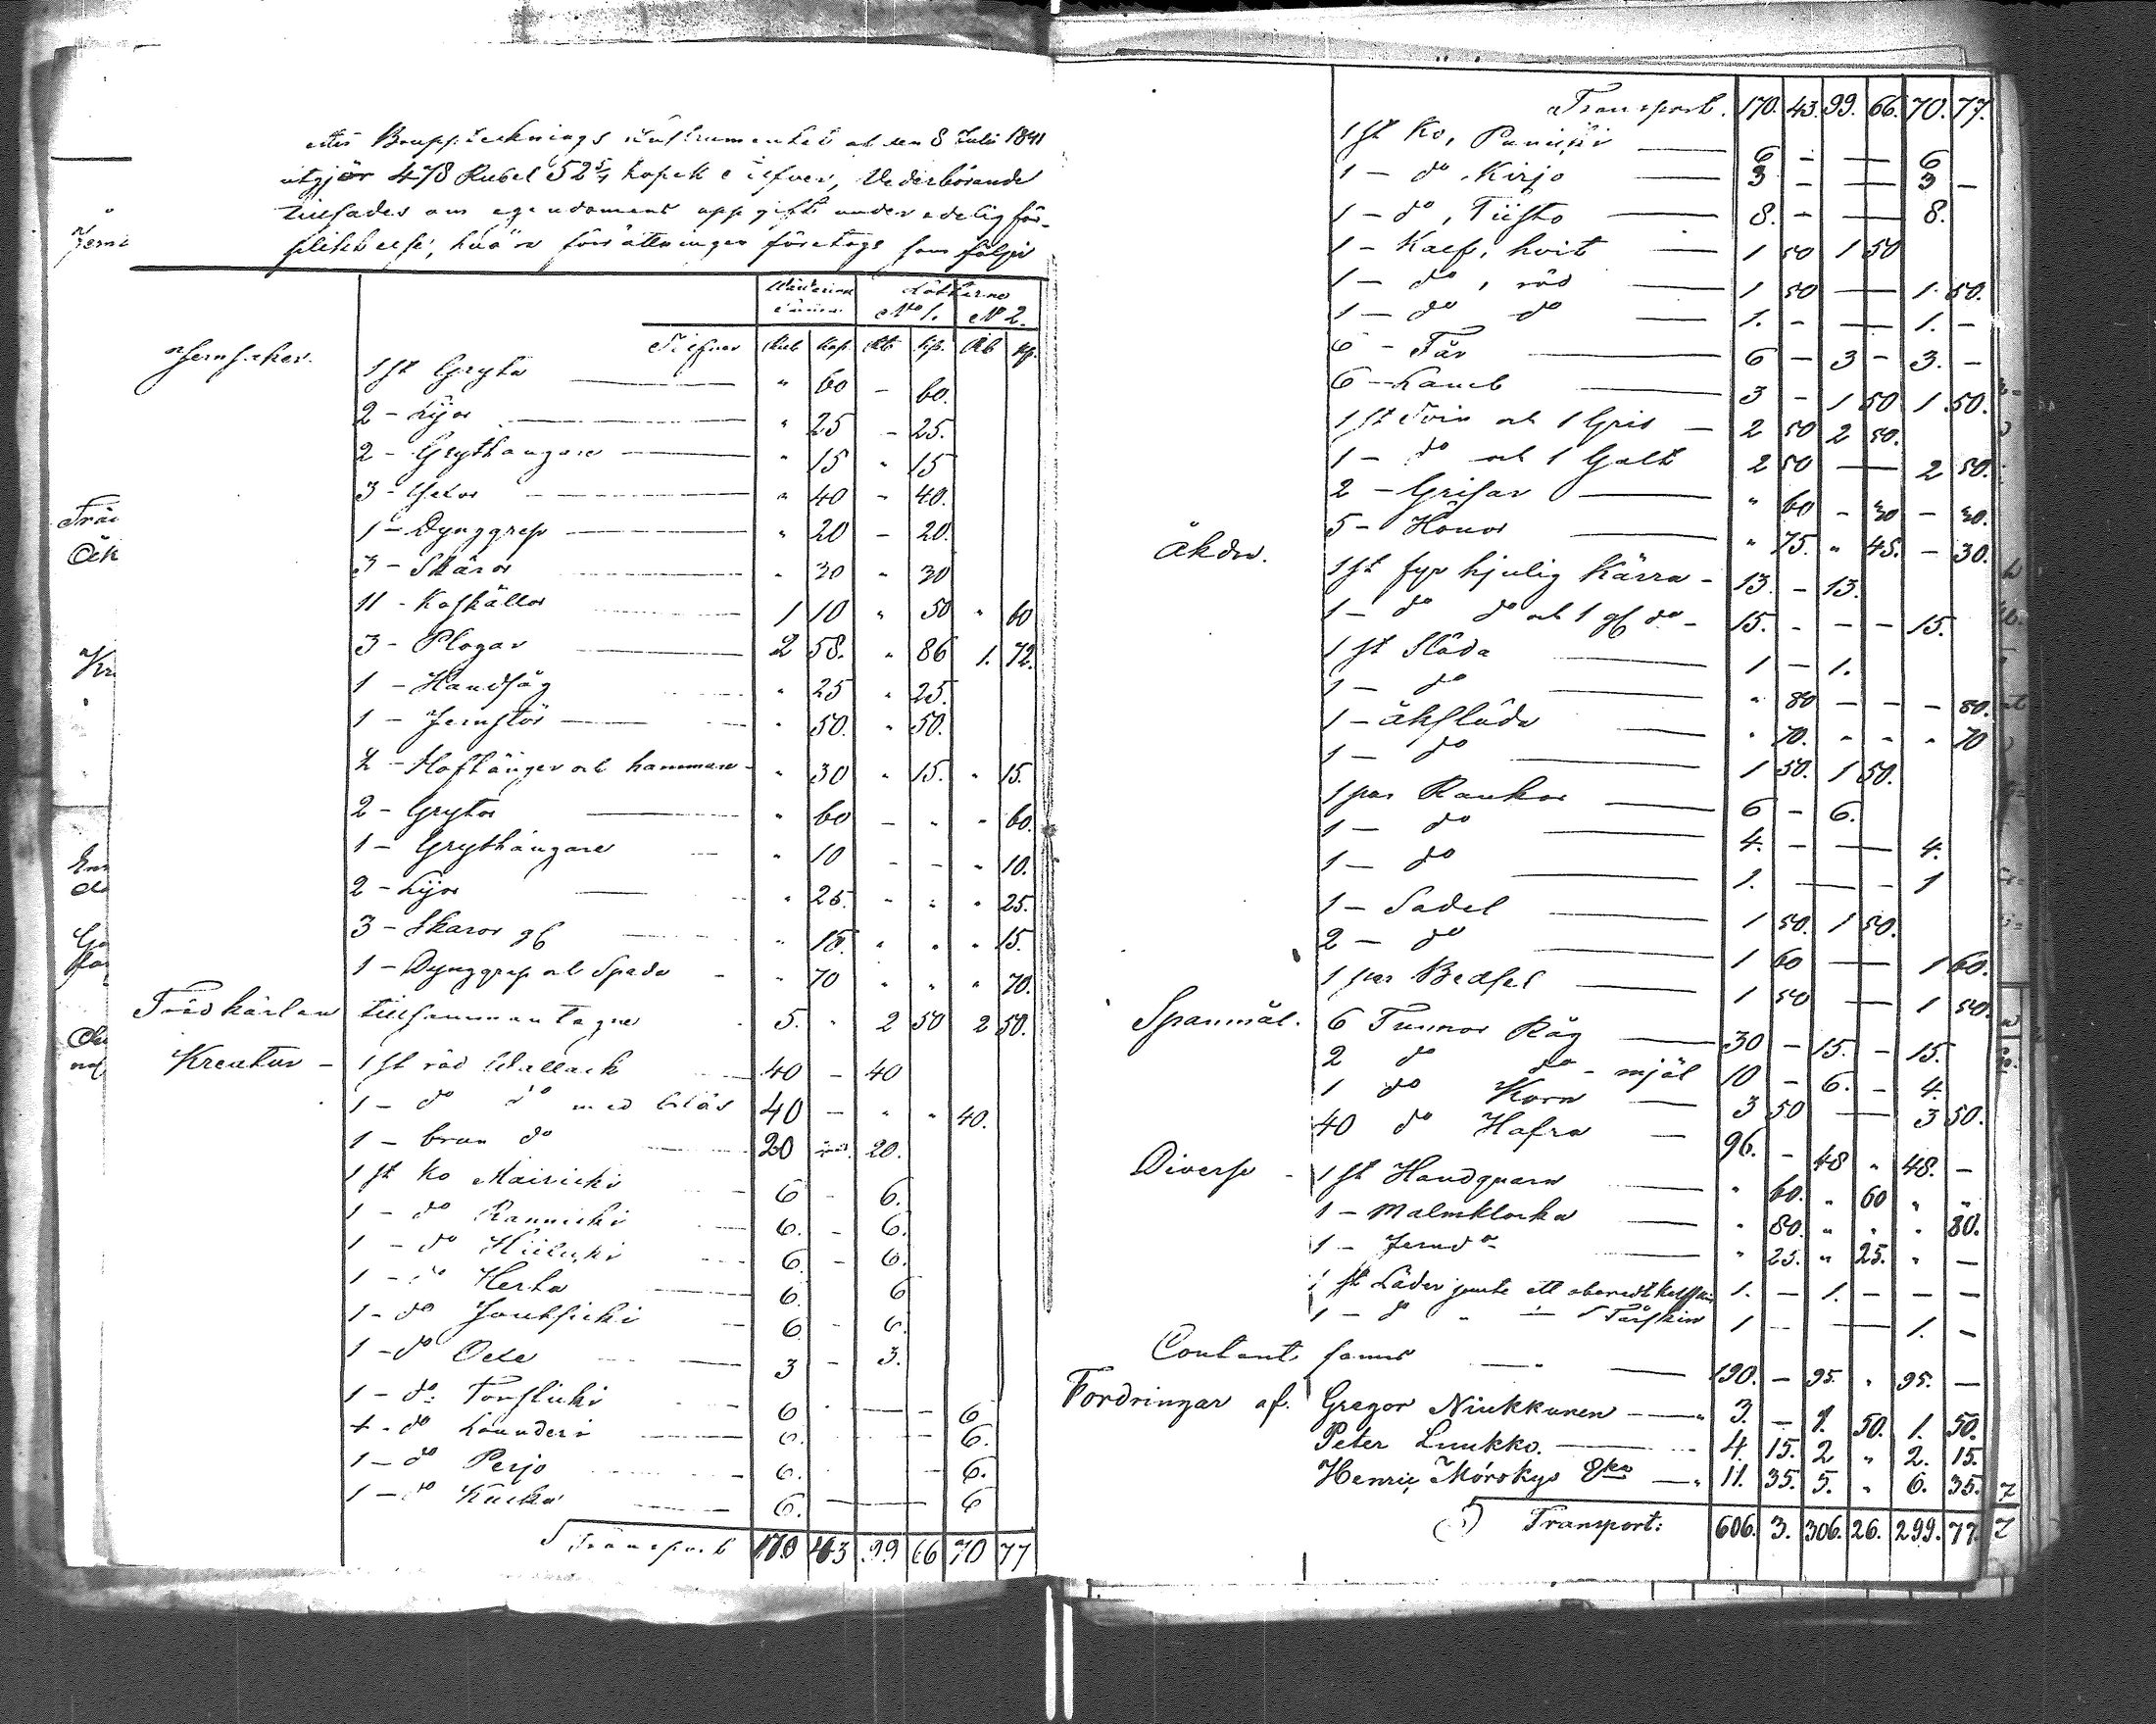 efter Bouppteckningsinstrumentet af den 8 Juli 1841
utgjör 478 Rubel 52 5/7 kopek silfver, Vederbörande
tillsades om egendomens uppgift under edelig för-
pliktelse; hvarå förrättningen företogs som följer
Lotterne
No 1. N 2.
Silfver Rub Kop. Rb kop. Rb kp.
Jernsaker. 1 st Gryta " 60 - 60.
2 - Lijor " 25 - 25.
2 - Grythängare " 15 " 15
3 - Yxor " 40 - 40.
1 - Dynggrep " 20 - 20.
3 - Skäror " 30 " 30
11 - Koskällor 1 10 " 50 " 60
3 - Plogar 2 58. " 86 1. 72.
1 - Handsåg " 25 " 25.
1 - Jernstör " 50. " 50.
2 - Hoftänger och hammare " 30 " 15. " 15.
2 - Grytor " 60 - " - 60.
1 - Grythängare " 10 - - " 10.
2 - Lijor " 25. " " " 25.
3 - Skäror gl " 15. " " " 15.
1 - Dynggrep och Spade " 70 " " " 70.
Trädkärlen tillsammantagne 5. " 2 50 2 50.
Kreatur - 1 st röd Wallack 40 - 40
1 - do do med bläs 40 - " " 40.
1 - brun do 20 20.
1 st Ko Mairicki 6 - 6.
1 - do Rannicki 6. - 6.
1 - do Hiilucki 6 - 6.
1 - do Herta 6. 6
1 - do Jouksicki 6 - 6.
1 - do Oele 3 - 3.
1 - do: Torslicki 6 - 6
1 - do Launderi 6. 6.
1 - do Perjo 6. - 6.
1 - do Kucka 6. 6
Transport 170 43 99 66 70 77
Transport. 170. 43. 99. 66. 70. 77.
1 st Ko, Punicki 6 - 6
1 - do, Kirjo 3 - 3 -
1 - do, Tiisto 8. - 8.
1 - Kalf, hvit 1 50 1 50
1 - do, röd 1 50 1. 50.
1 - do do 1. - 1. -
6 - Får 6 - 3 - 3. -
6 - Lamb 3 - 1 50 1 50.
1 st Svin och 1 Gris 2 50 2 50.
1 - do och 1 Galt 2 50 2 50.
2 - Grisar " 60 - 30 - 30.
5 - Hönor " 75. " 45. - 30.
Åkdon. 1 st fyrhjulig Kärra - 13. - 13.
1 - do do och 1 gl do - 15. - - - 15.
1 st Släda 1 - 1.
1 - do " 80 - - - 80.
1 - åksläda " 70. " " " 70
1 - do 1 50. 1 50.
1 par Rankor 6 - 6.
1 - do 4. - 4.
1 - do 1. - 1
1 - Sadel 1 50. 1 50.
2 - do 1 60 1 60.
1 par Bedsel 1 50 1 50.
Spanmål. 6 Tunnor Råg 30 - 15. - 15.
2 do do - mjöl 10 - 6. - 4.
1 do Korn 3 50 3 50.
40 do Hafra 96. - 48 " 48. -
Diverse - 1 st Handqvarn " 60. " 60 " "
1 - Malmklocka " 80. " " " 80.
1 - Jerndo " 25. " 25. " -
1 st Läder jemte ett oberedt kalfskin 1. - 1. - - -
1 - do " 1 Fårskin 1 - 1. -
Contant fanns 190. - 95. " 95. -
Fordringar af. Gregor Niukkanen " 3. - 1. 50. 1. 50.
Peter Luukko. 4. 15. 2 " 2. 15.
Henric Mörskys Eka " 11. 35. 5. " 6. 35.
Transport: 606. 3. 306. 26. 299. 77.